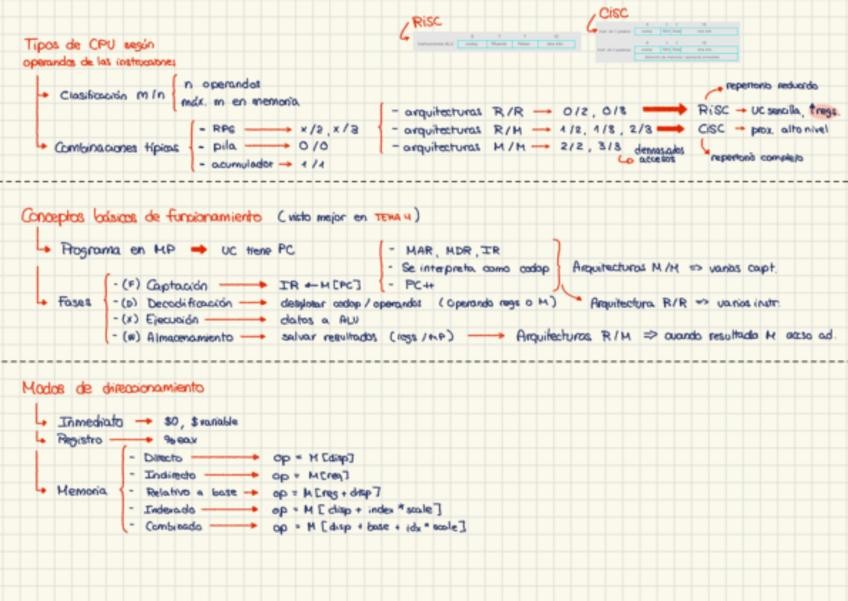 RISC
CISC
Tipos de CPU según
operandos de las instrucciones
Clasificación m/n
n operandos
máx. m en memoria
Combinaciones típicas
- RPG → x/2, x/3
- pila → 0/0
- acumulador → 1/1
- arquitecturas R/R → 0/2, 0/3
- arquitecturas R/M → 1/2, 1/3, 2/3
- arquitecturas M/M → 2/2, 3/3
demasiados
accesos
repertorio reducido
RISC → UC sencilla, ↑regs.
CISC → prox. alto nivel
repertorio completo
Conceptos básicos de funcionamiento (visto mejor en TEMA 4)
Programa en MP → UC tiene PC
- MAR, MDR, IR
- Se interpreta como codop
- PC++
Arquitecturas M/M => varias capt.
Arquitectura R/R => varias instr.
Fases
- (F) Captación → IR ← M[PC]
- (D) Decodificación → desglosar codop/operandos (operando regs o M)
- (X) Ejecución → datos a ALU
- (W) Almacenamiento → salvar resultados (regs/MP) → Arquitecturas R/M => cuando resultado M acceso ad.
Modos de direccionamiento
Inmediato → $0, $variable
Registro → %eax
Memoria
- Directo → op = M[disp]
- Indirecto → op = M[reg]
- Relativo a base → op = M[reg + disp]
- Indexado → op = M[disp + index * scale]
- Combinado → op = M[disp + base + idx * scale]